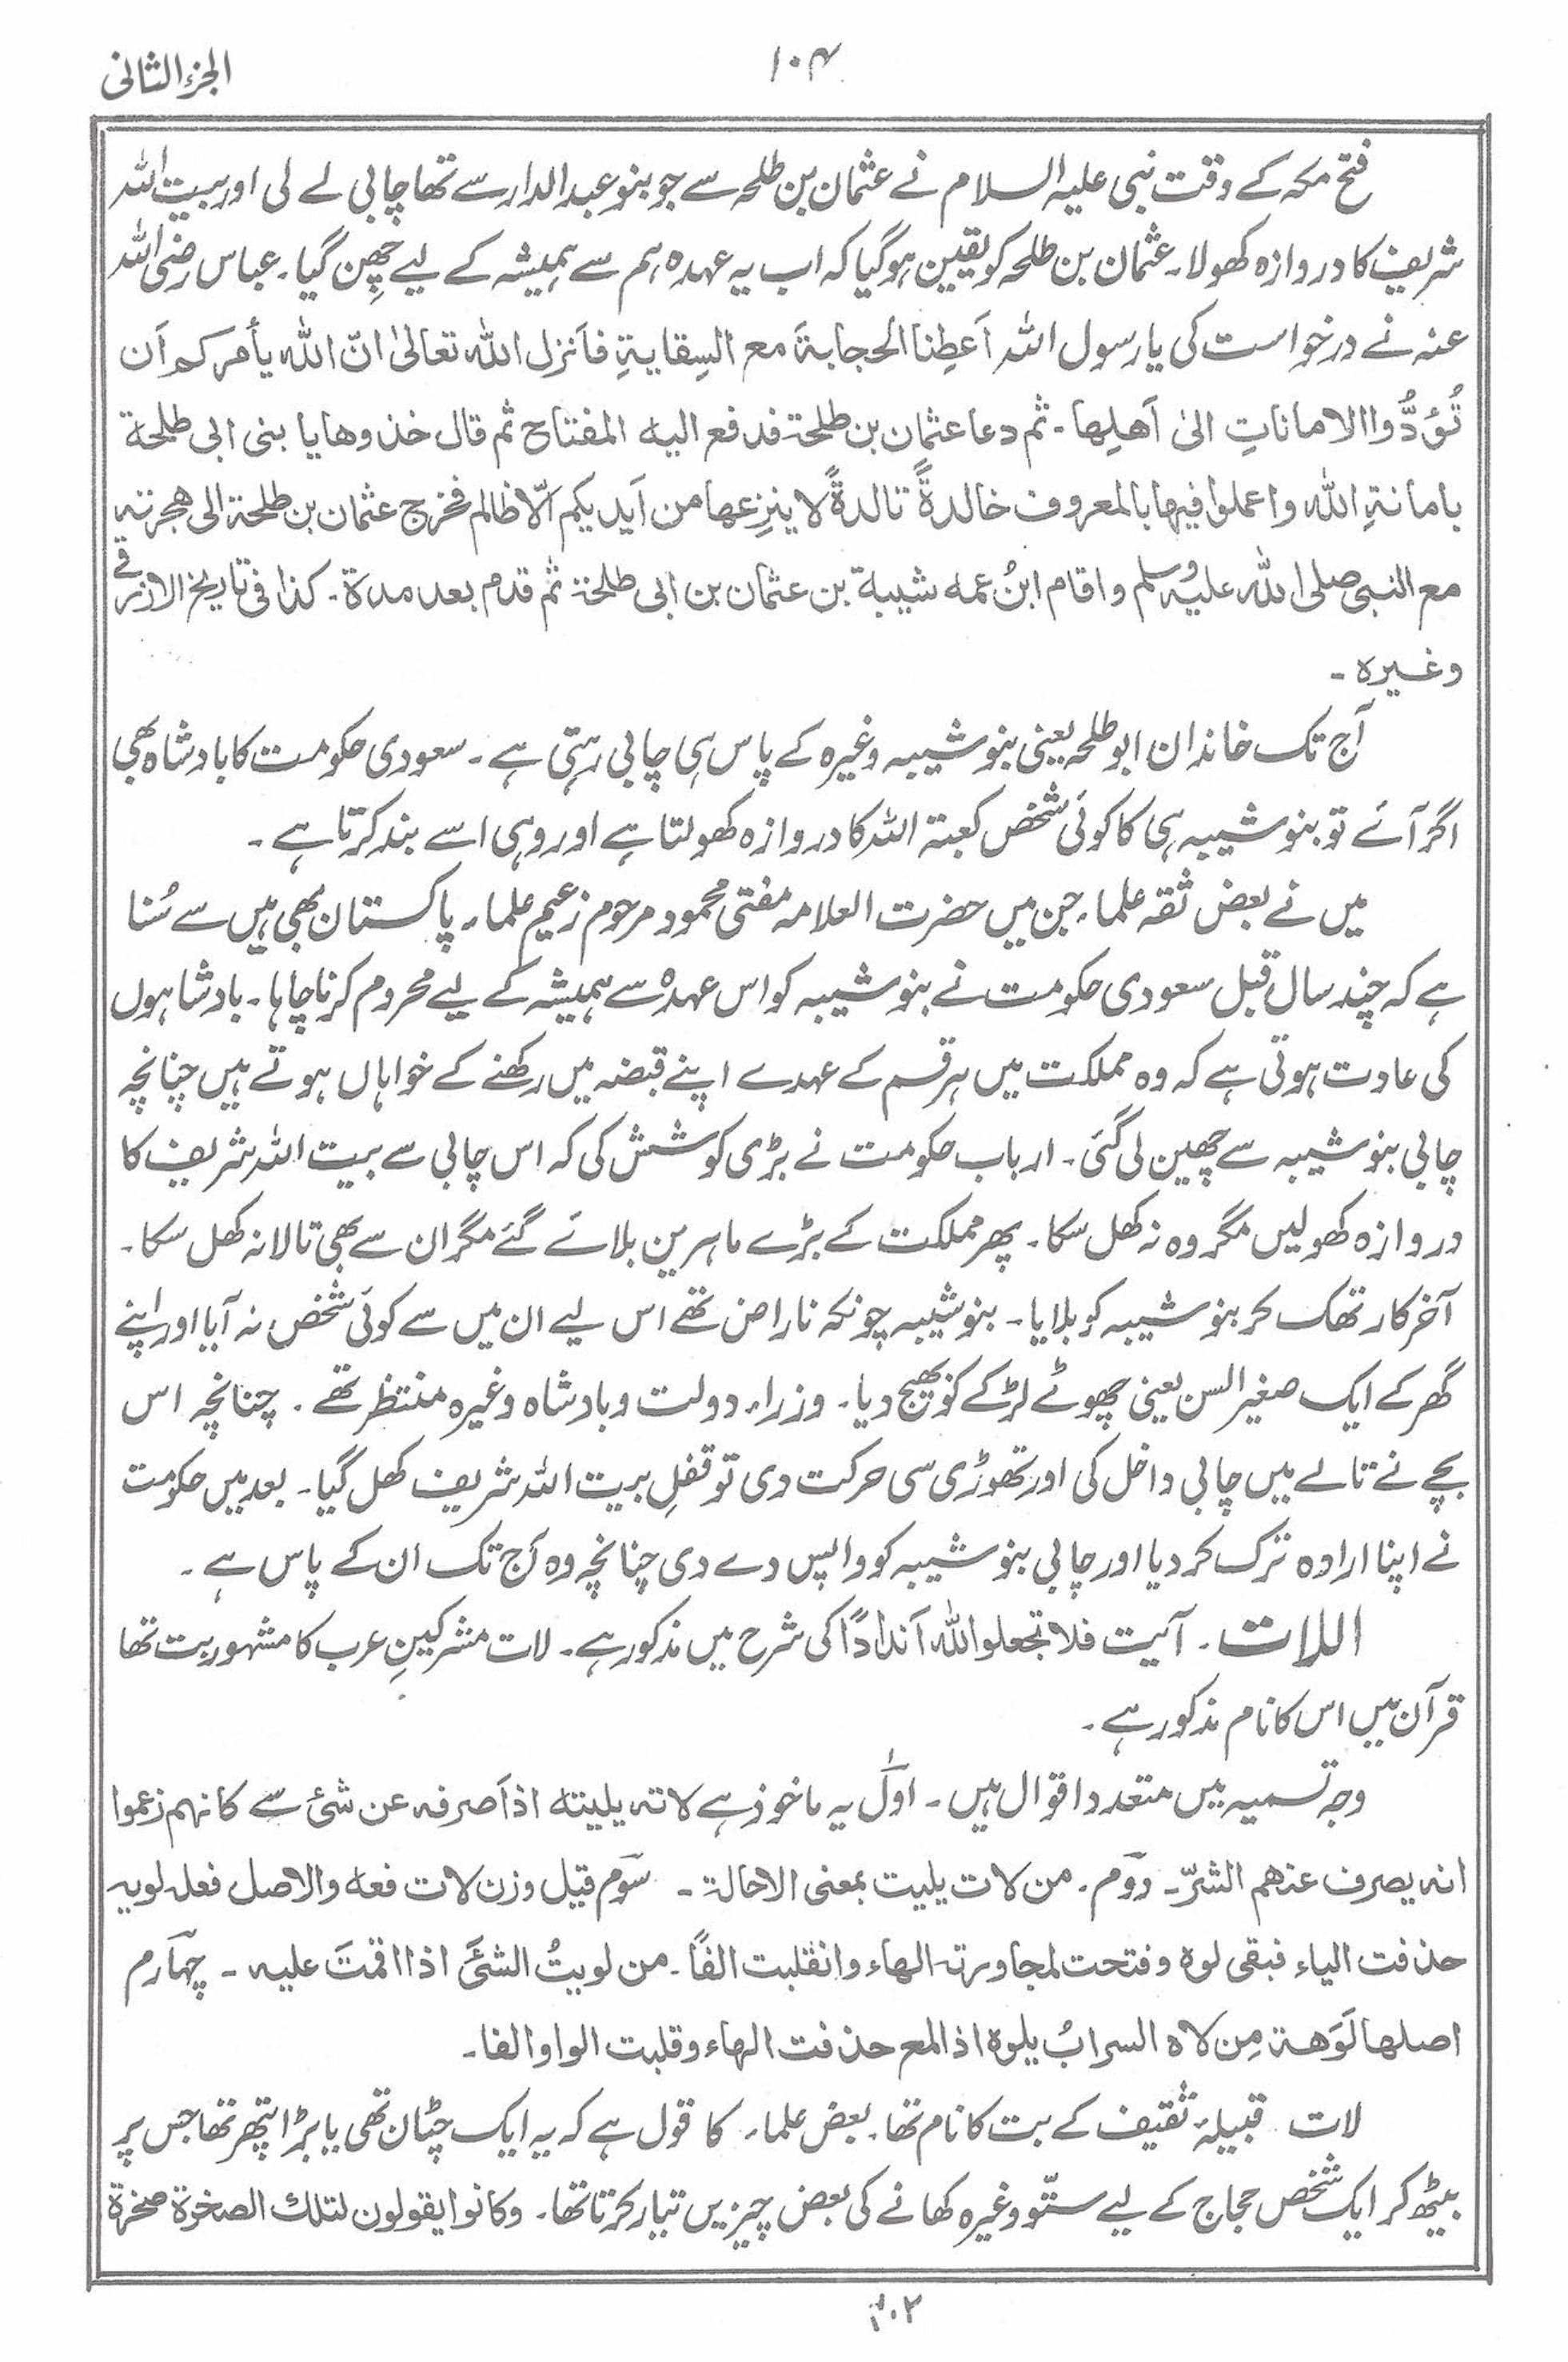 الجزء الثانی
۱۰۴
فتح مکہ کے وقت نبی علیہ السلام نے عثمان بن طلحہ سے جو بنو عبدالدار سے تھا چابی لے لی اور بیت اللہ
شریف کا دروازہ کھولا۔ عثمان بن طلحہ کو یقین ہوگیا کہ اب یہ عہدہ ہم سے ہمیشہ کے لیے چھِن گیا۔ عباس رضی اللہ
عنہ نے درخواست کی یا رسول اللہ اَعطِنا الحجابۃَ مع السِقایۃِ فاَنزل اللہ تعالیٰ انّ اللہ یأمرکم اَن
تُؤدُّوا الاماناتِ الیٰ اَھلِھا۔ ثم دعا عثمان بن طلحۃ فدفع الیہ المفتاح ثم قال خذوھا یا بنی ابی طلحۃ
بامانۃِ اللہ واعملوا فیھا بالمعروف خالدۃً تالدۃً لا ینزِعھا من اَیدیکم الّا ظالم فخرج عثمان بن طلحۃ الی ھجرتہ
مع النبی صلی اللہ علیہ وسلم واقام ابنُ عمہ شیبۃ بن عثمان بن ابی طلحۃ ثم قدم بعد مدۃ۔ کذا فی تاریخ الازرقی
وغیرہ۔
آج تک خاندان ابو طلحہ یعنی بنو شیبہ وغیرہ کے پاس ہی چابی رہتی ہے۔ سعودی حکومت کا بادشاہ بھی
اگر آئے تو بنو شیبہ ہی کا کوئی شخص کعبۃ اللہ کا دروازہ کھولتا ہے اور وہی اسے بند کرتا ہے۔
میں نے بعض ثقہ علماء جن میں حضرت العلامہ مفتی محمود مرحوم زعیم علماء پاکستان بھی ہیں سے سُنا
ہے کہ چند سال قبل سعودی حکومت نے بنو شیبہ کو اس عہدہ سے ہمیشہ کے لیے محروم کرنا چاہا۔ بادشاہوں
کی عادت ہوتی ہے کہ وہ مملکت میں ہر قسم کے عہدے اپنے قبضہ میں رکھنے کے خواہاں ہوتے ہیں چنانچہ
چابی بنو شیبہ سے چھین لی گئی۔ ارباب حکومت نے بڑی کوشش کی کہ اس چابی سے بیت اللہ شریف کا
دروازہ کھولیں مگر وہ نہ کھل سکا۔ پھر مملکت کے بڑے ماہرین بلائے گئے مگر ان سے بھی تالا نہ کھل سکا۔
آخر کار تھک کر بنو شیبہ کو بلایا۔ بنو شیبہ چونکہ ناراض تھے اس لیے ان میں سے کوئی شخص نہ آیا اور اپنے
گھر کے ایک صغیر السن یعنی چھوٹے لڑکے کو بھیج دیا۔ وزراء دولت و بادشاہ وغیرہ منتظر تھے۔ چنانچہ اس
بچے نے تالے میں چابی داخل کی اور تھوڑی سی حرکت دی تو قفلِ بیت اللہ شریف کھل گیا۔ بعد میں حکومت
نے اپنا ارادہ ترک کر دیا اور چابی بنو شیبہ کو واپس دے دی چنانچہ وہ آج تک ان کے پاس ہے۔
اللات۔ آیت فلا تجعلوا للہ اَندادًا کی شرح میں مذکور ہے۔ لات مشرکینِ عرب کا مشہور بت تھا
قرآن میں اس کا نام مذکور ہے۔
وجہ تسمیہ میں متعدد اقوال ہیں۔ اوّل یہ ماخوذ ہے لاتہ یلیتہ اذا صرفہ عن شئ سے کانھم زعموا
انہ یصرف عنھم الشرّ۔ دوم۔ من لات یلیت بمعنی الاحالۃ۔ سوم قیل وزن لات فعہ والاصل فعلہ لویہ
حذفت الیاء فبقی لوہ وفتحت لمجاورتہ الھاء وانقلبت الفًا۔ من لویتُ الشئَ اذا اقمتَ علیہ۔ چہارم
اصلھا لَوَھۃ مِن لاہ السرابُ یلوہ اذا لمع حذفت الھاء وقلبت الواو الفا۔
لات قبیلۂ ثقیف کے بت کا نام تھا۔ بعض علماء کا قول ہے کہ یہ ایک چٹان تھی یا بڑا پتھر تھا جس پر
بیٹھ کر ایک شخص حجاج کے لیے ستّو وغیرہ کھانے کی بعض چیزیں تیار کرتا تھا۔ وکانوا یقولون لتلک الصخرۃ صخرۃ
۲۰۲